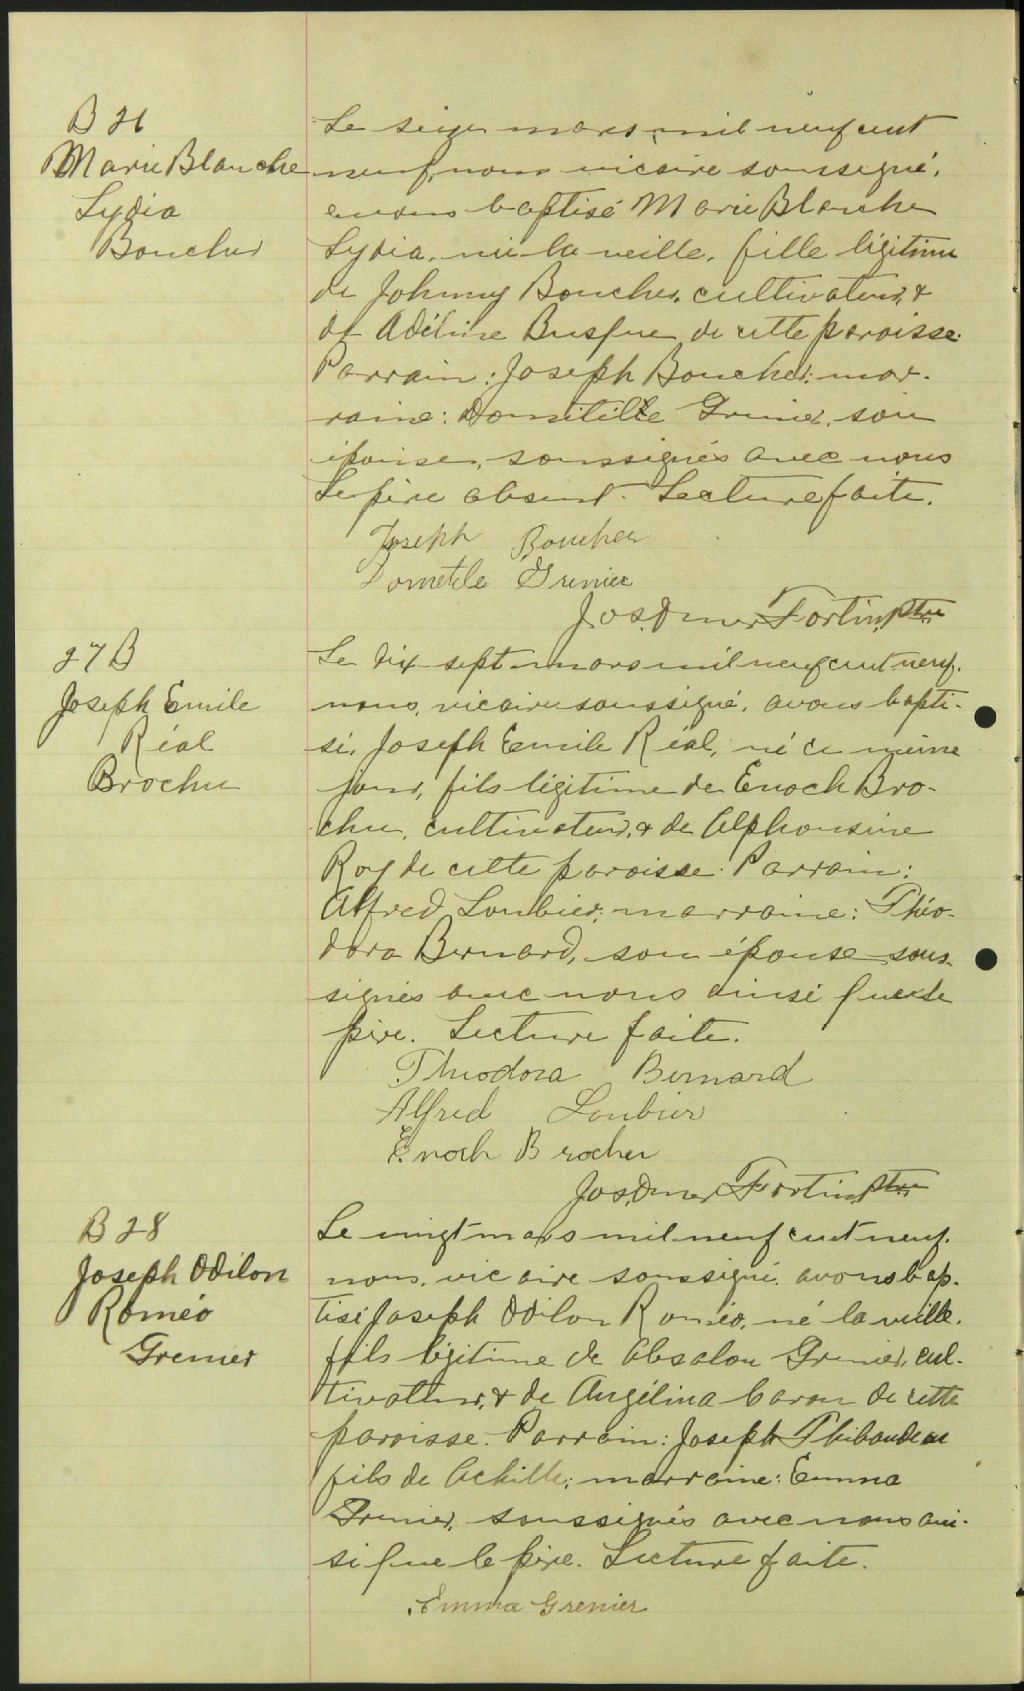 B 26
Marie Blanche
Lydia
Boucher
Le seize mars mil neuf cent
neuf, nous vicaire soussigné,
avons baptisé Marie Blanche
Lydia, née la veille, fille légitime
de Johnny Boucher, cultivateur, &
de Adéline Busque de cette paroisse.
Parrain: Joseph Boucher; mar-
raine: Domitille Grenier, son
épouse, soussignés avec nous
Le père absent. Lecture faite.
Joseph Boucher
Dometile Grenier
Jos. Omer Fortin, ptre
27 B
Joseph Emile
Réal
Brochu
Le dix-sept mars mil neuf cent neuf,
nous, vicaire soussigné, avons bapti-
sé, Joseph Emile Réal, né ce même
jour, fils légitime de Enoch Bro-
chu, cultivateur, & de Alphonsine
Roy de cette paroisse. Parrain:
Alfred Loubier; marraine: Théo-
dora Bernard, son épouse sous-
signés avec nous ainsi que le
père. Lecture faite.
Théodora Bernard
Alfred Loubier
Enoch Brocher
Jos. Omer Fortin, ptre
B 28
Joseph Odilon
Roméo
Grenier
Le vingt mars mil neuf cent neuf,
nous, vicaire soussigné, avons bap-
tisé Joseph Odilon Roméo, né la veille,
fils légitime de Absalon Grenier, cul-
tivateur, & de Angélina Caron de cette
paroisse. Parrain: Joseph Thibaudeau
fils de Achille; marraine: Emma
Grenier, soussignés avec nous ain-
si que le père. Lecture faite.
Emma Grenier